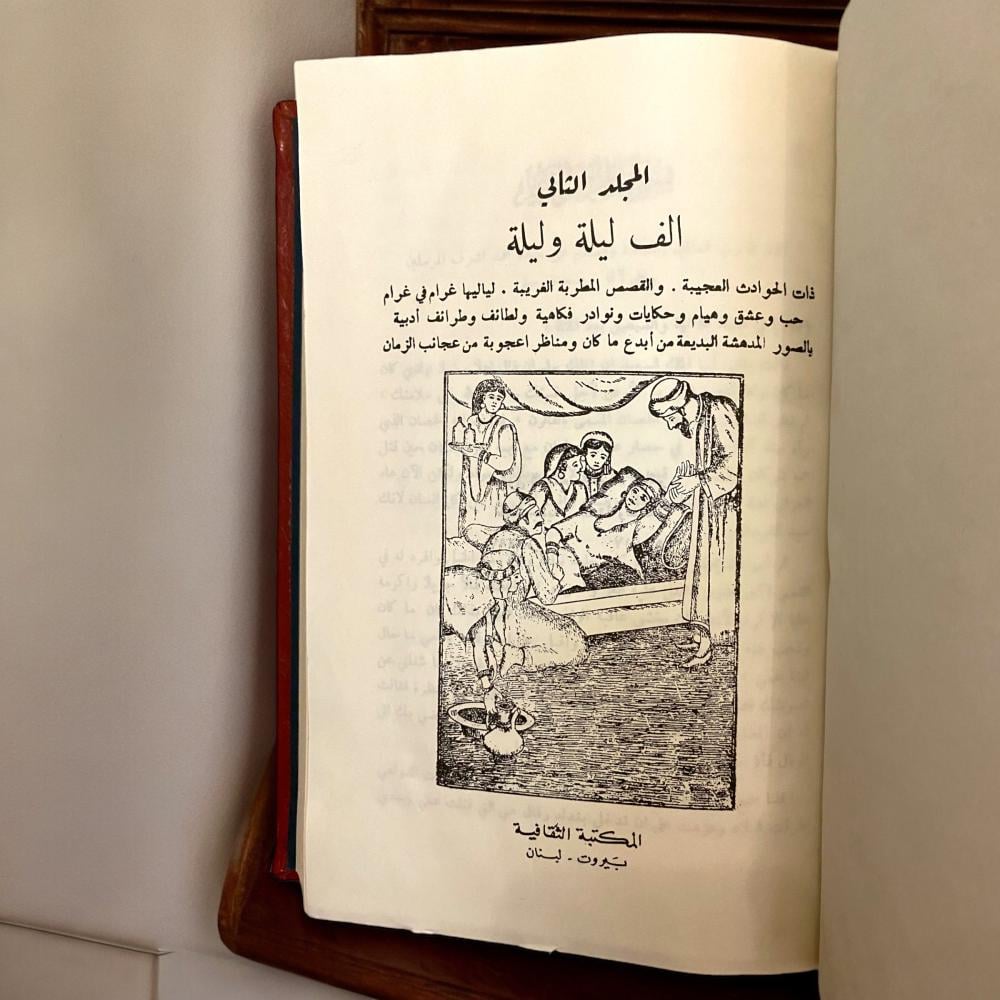 المجلد الثاني
الف ليلة وليلة
ذات الحوادث العجيبة . والقصص المطربة الغريبة . لياليها غرام في غرام
حب وعشق وهيام وحكايات ونوادر فكاهية ولطائف وطرائف أدبية
بالصور المدهشة البديعة من أبدع ما كان ومناظر اعجوبة من عجائب الزمان
المكتبة الثقافية
بيروت - لبنان